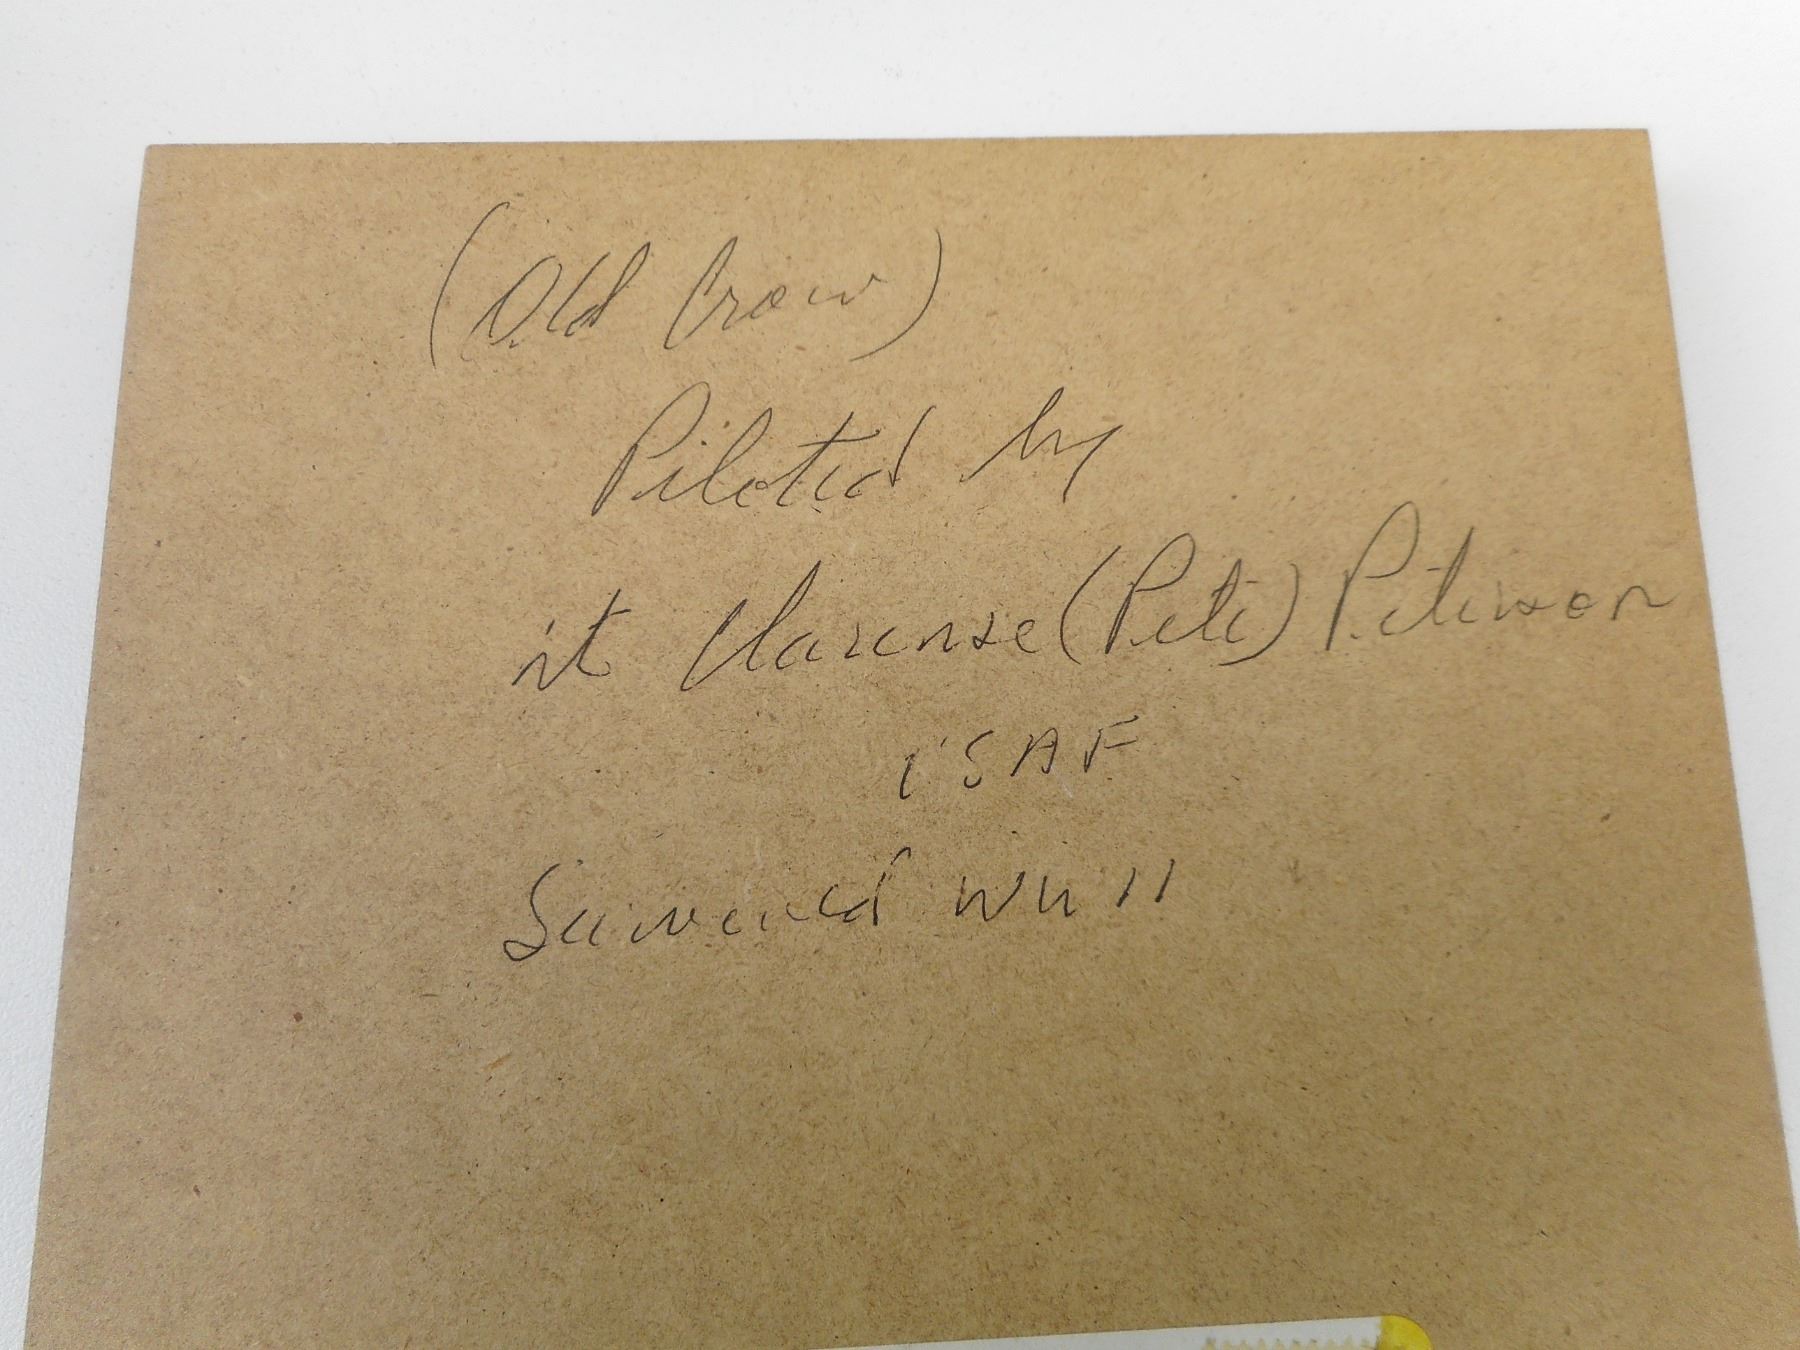 (Old Crow)
Piloted by
Lt Clarense (Pete) Peterson
USAF
Survived WW II